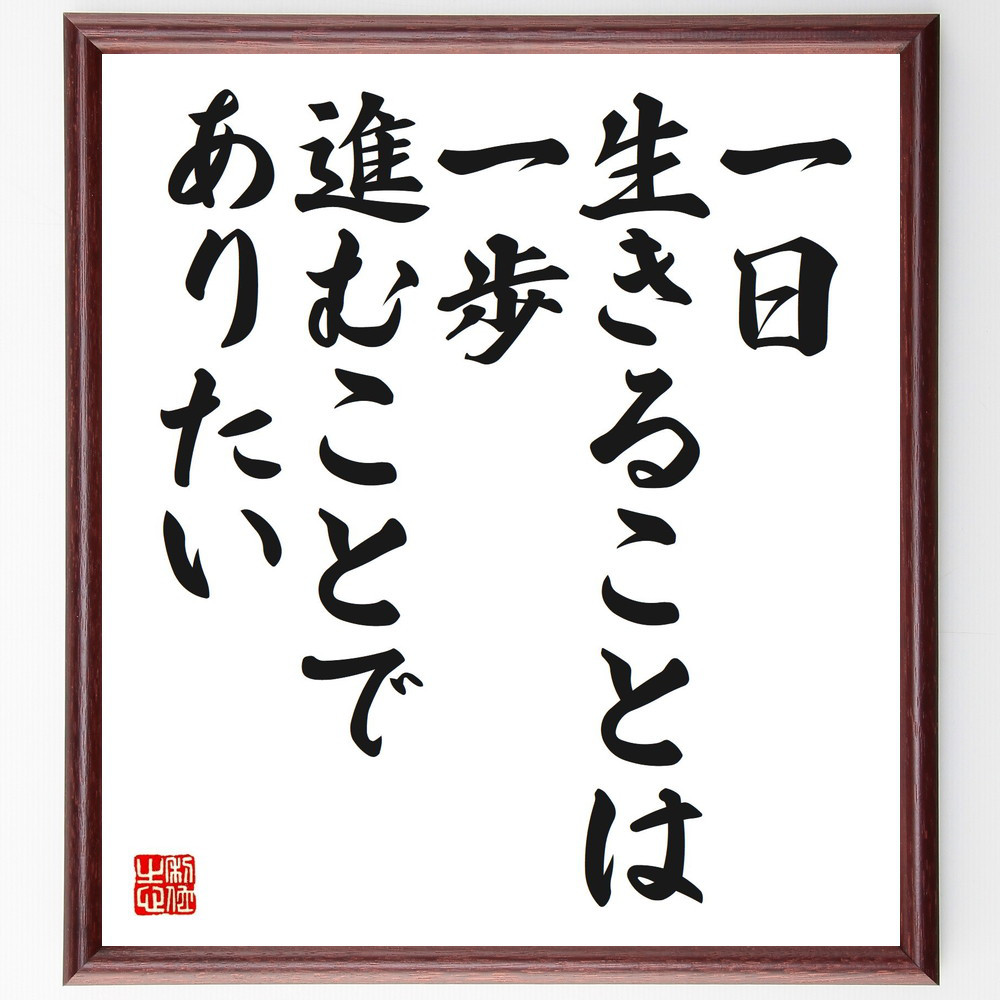 一日
生きることは
一歩
進むことで
ありたい